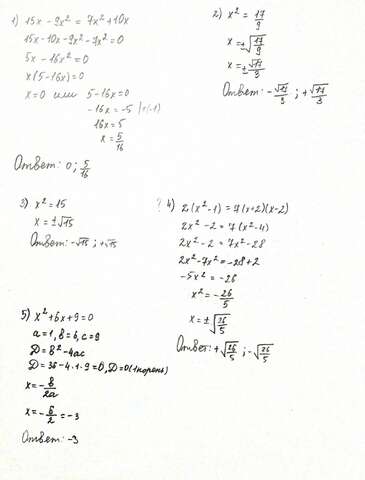 1) 15x - 9x² = 7x² + 10x
15x - 10x - 9x² - 7x² = 0
5x - 16x² = 0
x(5 - 16x) = 0
x = 0 или 5 - 16x = 0
-16x = -5 | (÷ -1)
16x = 5
x = 5/16
Ответ: 0; 5/16
2) x² = 17/9
x = ±√17/9
x = ±√17/3
Ответ: -√17/3; +√17/3
3) x² = 15
x = ±√15
Ответ: -√15; +√15
? 4) 2(x² - 1) = 7(x + 2)(x - 2)
2x² - 2 = 7(x² - 4)
2x² - 2 = 7x² - 28
2x² - 7x² = -28 + 2
-5x² = -26
x² = -26/5
x = ±√26/5
Ответ: +√26/5; -√26/5
5) x² + 6x + 9 = 0
a = 1, b = 6, c = 9
D = b² - 4ac
D = 36 - 4·1·9 = 0, D = 0 (1 корень)
x = -b/2a
x = -6/2 = -3
Ответ: -3